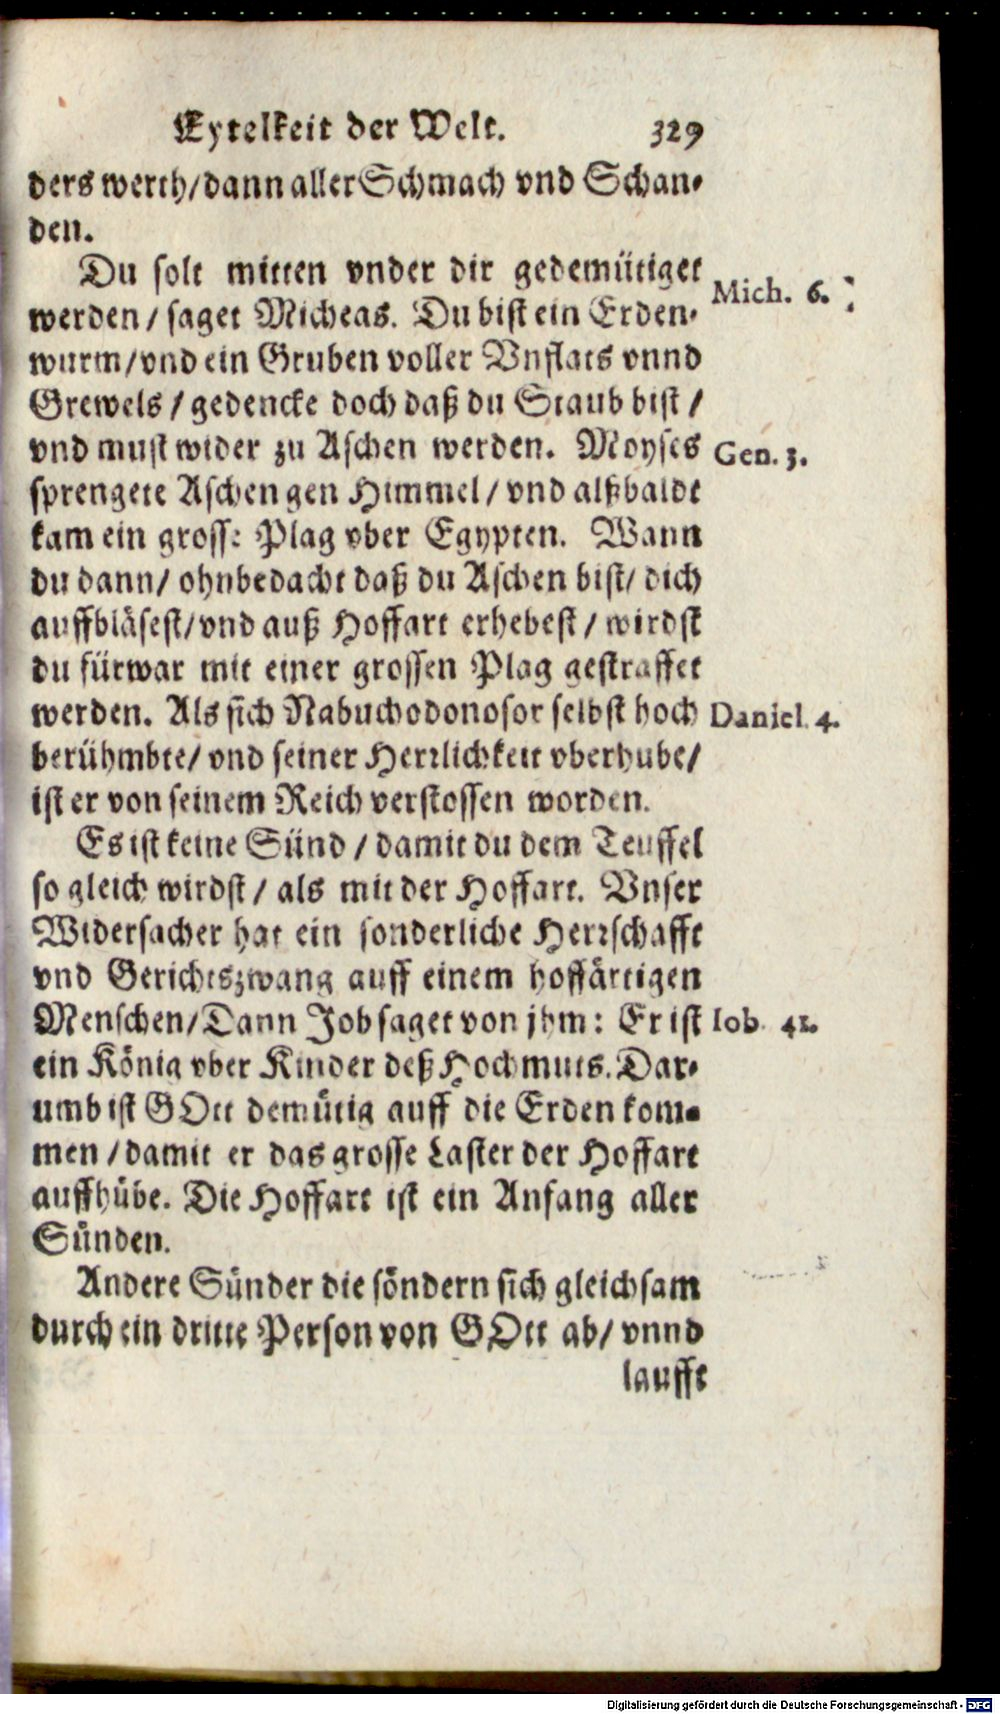 Eytelkeit der Welt. 329
ders werth/dann aller Schmach vnd Schan-
den.
Du solt mitten vnder dir gedemütiget
Mich. 6.
werden/ saget Micheas. Du bist ein Erden-
wurm/vnd ein Gruben voller Vnflats vnnd
Grewels/ gedencke doch daß du Staub bist/
vnd must wider zu Aschen werden. Moyses
Gen. 3.
sprengete Aschen gen Himmel/ vnd alßbaldt
kam ein grosse Plag vber Egypten. Wann
du dann/ ohnbedacht daß du Aschen bist/ dich
auffbläsest/vnd auß Hoffart erhebest/ wirdst
du fürwar mit einer grossen Plag gestraffet
werden. Als sich Nabuchodonosor selbst hoch
Daniel. 4.
berühmbte/ vnd seiner Herrlichkeit vberhube/
ist er von seinem Reich verstossen worden.
Es ist keine Sünd/ damit du dem Teuffel
so gleich wirdst/ als mit der Hoffart. Vnser
Widersacher hat ein sonderliche Herrschafft
vnd Gerichtszwang auff einem hoffärtigen
Menschen/Dann Job saget von jhm: Er ist
Iob. 41.
ein König vber Kinder deß Hochmuts. Dar-
umb ist GOtt demütig auff die Erden kom-
men/damit er das grosse Laster der Hoffart
auffhübe. Die Hoffart ist ein Anfang aller
Sünden.
Andere Sünder die söndern sich gleichsam
durch ein dritte Person von GOtt ab/ vnnd
laufft
Digitalisierung gefördert durch die Deutsche Forschungsgemeinschaft - DFG